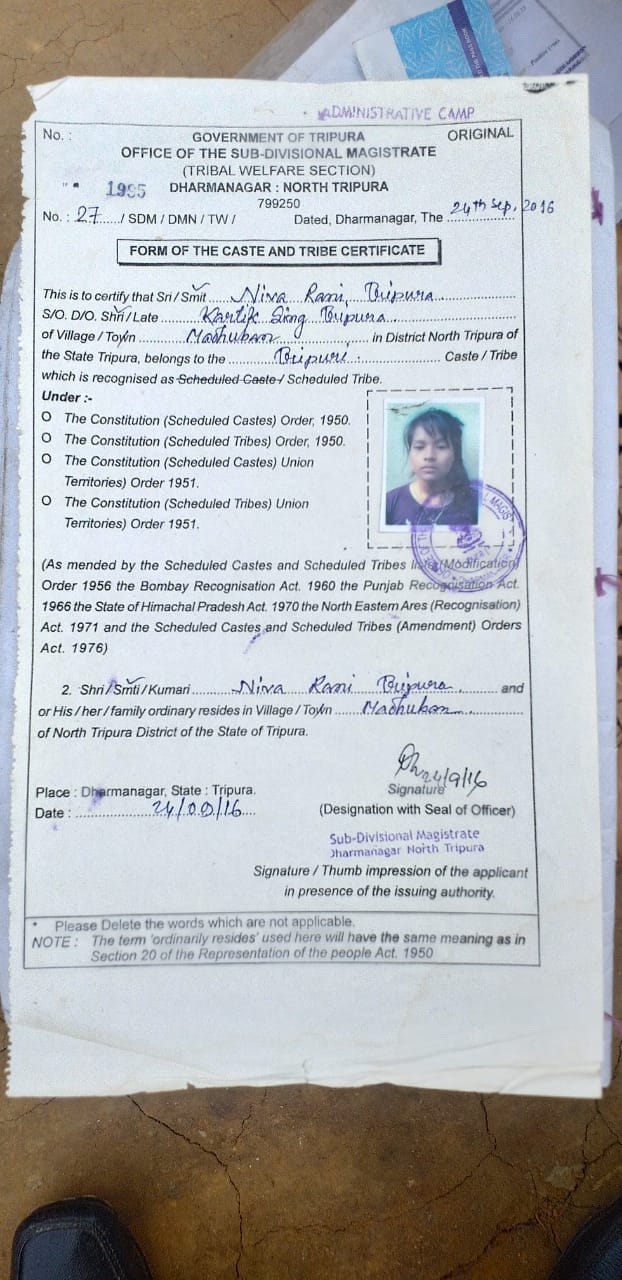 ADMINISTRATIVE CAMP
No. :
GOVERNMENT OF TRIPURA
ORIGINAL
OFFICE OF THE SUB-DIVISIONAL MAGISTRATE
(TRIBAL WELFARE SECTION)
1995 DHARMANAGAR : NORTH TRIPURA
799250
No. : 27 / SDM / DMN / TW / Dated, Dharmanagar, The 24th Sep, 2016
FORM OF THE CASTE AND TRIBE CERTIFICATE
This is to certify that Sri / Smit Niva Rani Tripura
S/O. D/O. Shri / Late Kartik Sing Tripura
of Village / Toyn Madhuban in District North Tripura of
the State Tripura, belongs to the Tripuri Caste / Tribe
which is recognised as Scheduled Caste / Scheduled Tribe.
Under :-
O The Constitution (Scheduled Castes) Order, 1950.
O The Constitution (Scheduled Tribes) Order, 1950.
O The Constitution (Scheduled Castes) Union
Territories) Order 1951.
O The Constitution (Scheduled Tribes) Union
Territories) Order 1951.
(As mended by the Scheduled Castes and Scheduled Tribes (Modification)
Order 1956 the Bombay Recognisation Act. 1960 the Punjab Recognisation Act.
1966 the State of Himachal Pradesh Act. 1970 the North Eastern Ares (Recognisation)
Act. 1971 and the Scheduled Castes and Scheduled Tribes (Amendment) Orders
Act. 1976)
2. Shri / Smti / Kumari Niva Rani Tripura and
or His / her / family ordinary resides in Village / Toyn Madhuban
of North Tripura District of the State of Tripura.
24/9/16
Signature
Place : Dharmanagar, State : Tripura.
Date : 24/09/16
(Designation with Seal of Officer)
Sub-Divisional Magistrate
Dharmanagar North Tripura
Signature / Thumb impression of the applicant
in presence of the issuing authority.
* Please Delete the words which are not applicable.
NOTE : The term 'ordinarily resides' used here will have the same meaning as in
Section 20 of the Representation of the people Act. 1950